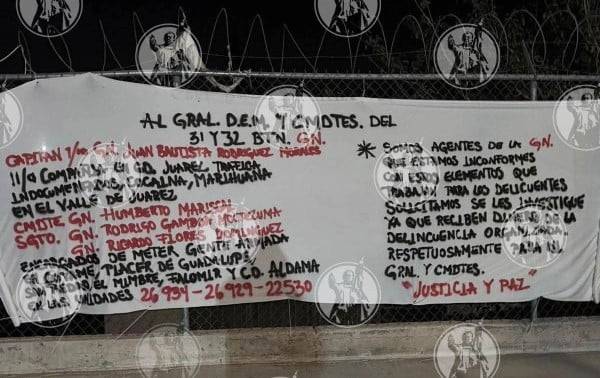 AL GRAL. D.E.M. Y CMDTES. DEL
31 Y 32 BTN. GN.
CAPITAN 1/o. GN. JUAN BAUTISTA RODRIGUEZ MORALES
11/a COMPAÑIA EN CD. JUAREZ TRAFICA
INDOCUMENTADOS, COCAINA, MARIHUANA
EN EL VALLE DE JUAREZ
CMDTE. GN. HUMBERTO MARISCAL
SGTO. GN. RODRIGO GAMBOA MOCTEZUMA
GN. RICARDO FLORES DOMINGUEZ
ENCARGADOS DE METER GENTE ARMADA
EN COYAME, PLACER DE GUADALUPE,
EL MIMBRE, FALOMIR Y CD. ALDAMA
EN LAS UNIDADES 26934-26929-22530
* SOMOS AGENTES DE LA GN.
QUE ESTAMOS INCONFORMES
CON ESTOS ELEMENTOS QUE
TRABAJAN PARA LOS DELICUENTES
SOLICITAMOS SE LES INVESTIGUE
YA QUE RECIBEN DINERO DE LA
DELINCUENCIA ORGANIZADA.
RESPETUOSAMENTE PARA MI
GRAL. Y CMDTES.
"JUSTICIA Y PAZ"